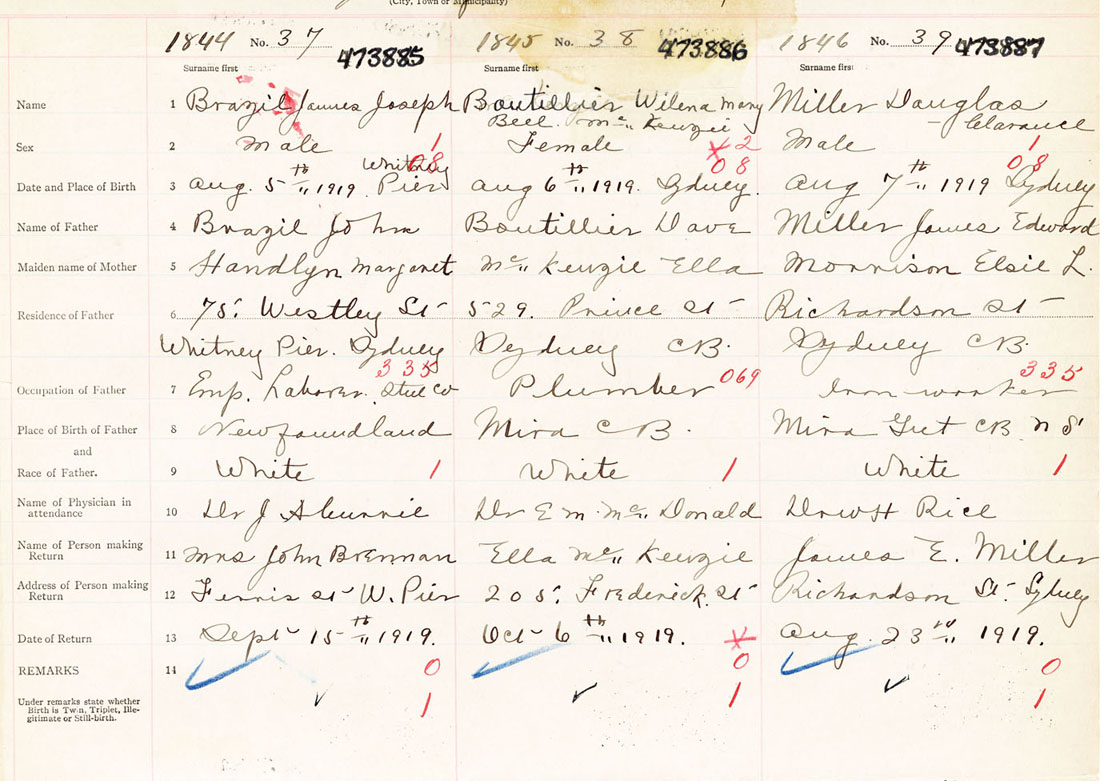 (City, Town or Municipality)
1844 No. 37 473885 1845 No. 38 473886 1846 No. 39 473887
Surname first Surname first Surname first
Name 1 Brazil James Joseph Boutillier Wilena Mary Miller Douglas
Bell Mc Kenzie Clarance
Sex 2 Male 1 Female 2 Male 1
Whitney 08 08 08
Date and Place of Birth 3 Aug. 5th 1919 Pier Aug 6th 1919. Sydney. Aug 7th 1919 Sydney
Name of Father 4 Brazil John Boutillier Dave Miller James Edward
Maiden name of Mother 5 Handlyn Margaret Mc Kenzie Ella Morrison Elsie L.
Residence of Father 6 75. Westley St 529. Prince St Richardson St
Whitney Pier. Sydney Sydney CB. Sydney CB.
335 069 335
Occupation of Father 7 Emp. Laborer. Steel Co Plumber Iron worker
Place of Birth of Father 8 Newfoundland Mira CB. Mira Gut CB N S
and
Race of Father. 9 White 1 White 1 White 1
Name of Physician in
attendance 10 Dr J A Currie Dr E M. Mc Donald Dr W H Rice
Name of Person making
Return 11 Mrs John Brennan Ella Mc Kenzie James E. Miller
Address of Person making
Return 12 Ferris St W. Pier 205. Frederick St Richardson St. Sydney
Date of Return 13 Sept 15th 1919. Oct 6th 1919. Aug. 23rd 1919.
REMARKS 14 0 0 0
Under remarks state whether
Birth is Twin, Triplet, Ille-
gitimate or Still-birth. 1 1 1